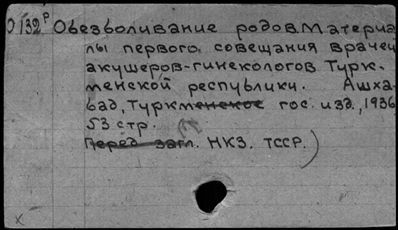 0132ᴾ Обезболивание родов. Материа
лы первого совещания врачей
акушеров-гинекологов Турк.
менской республики. Ашха-
бад, Туркменское гос. изд., 1936
53 стр.
Перед загл. НКЗ. ТССР.)